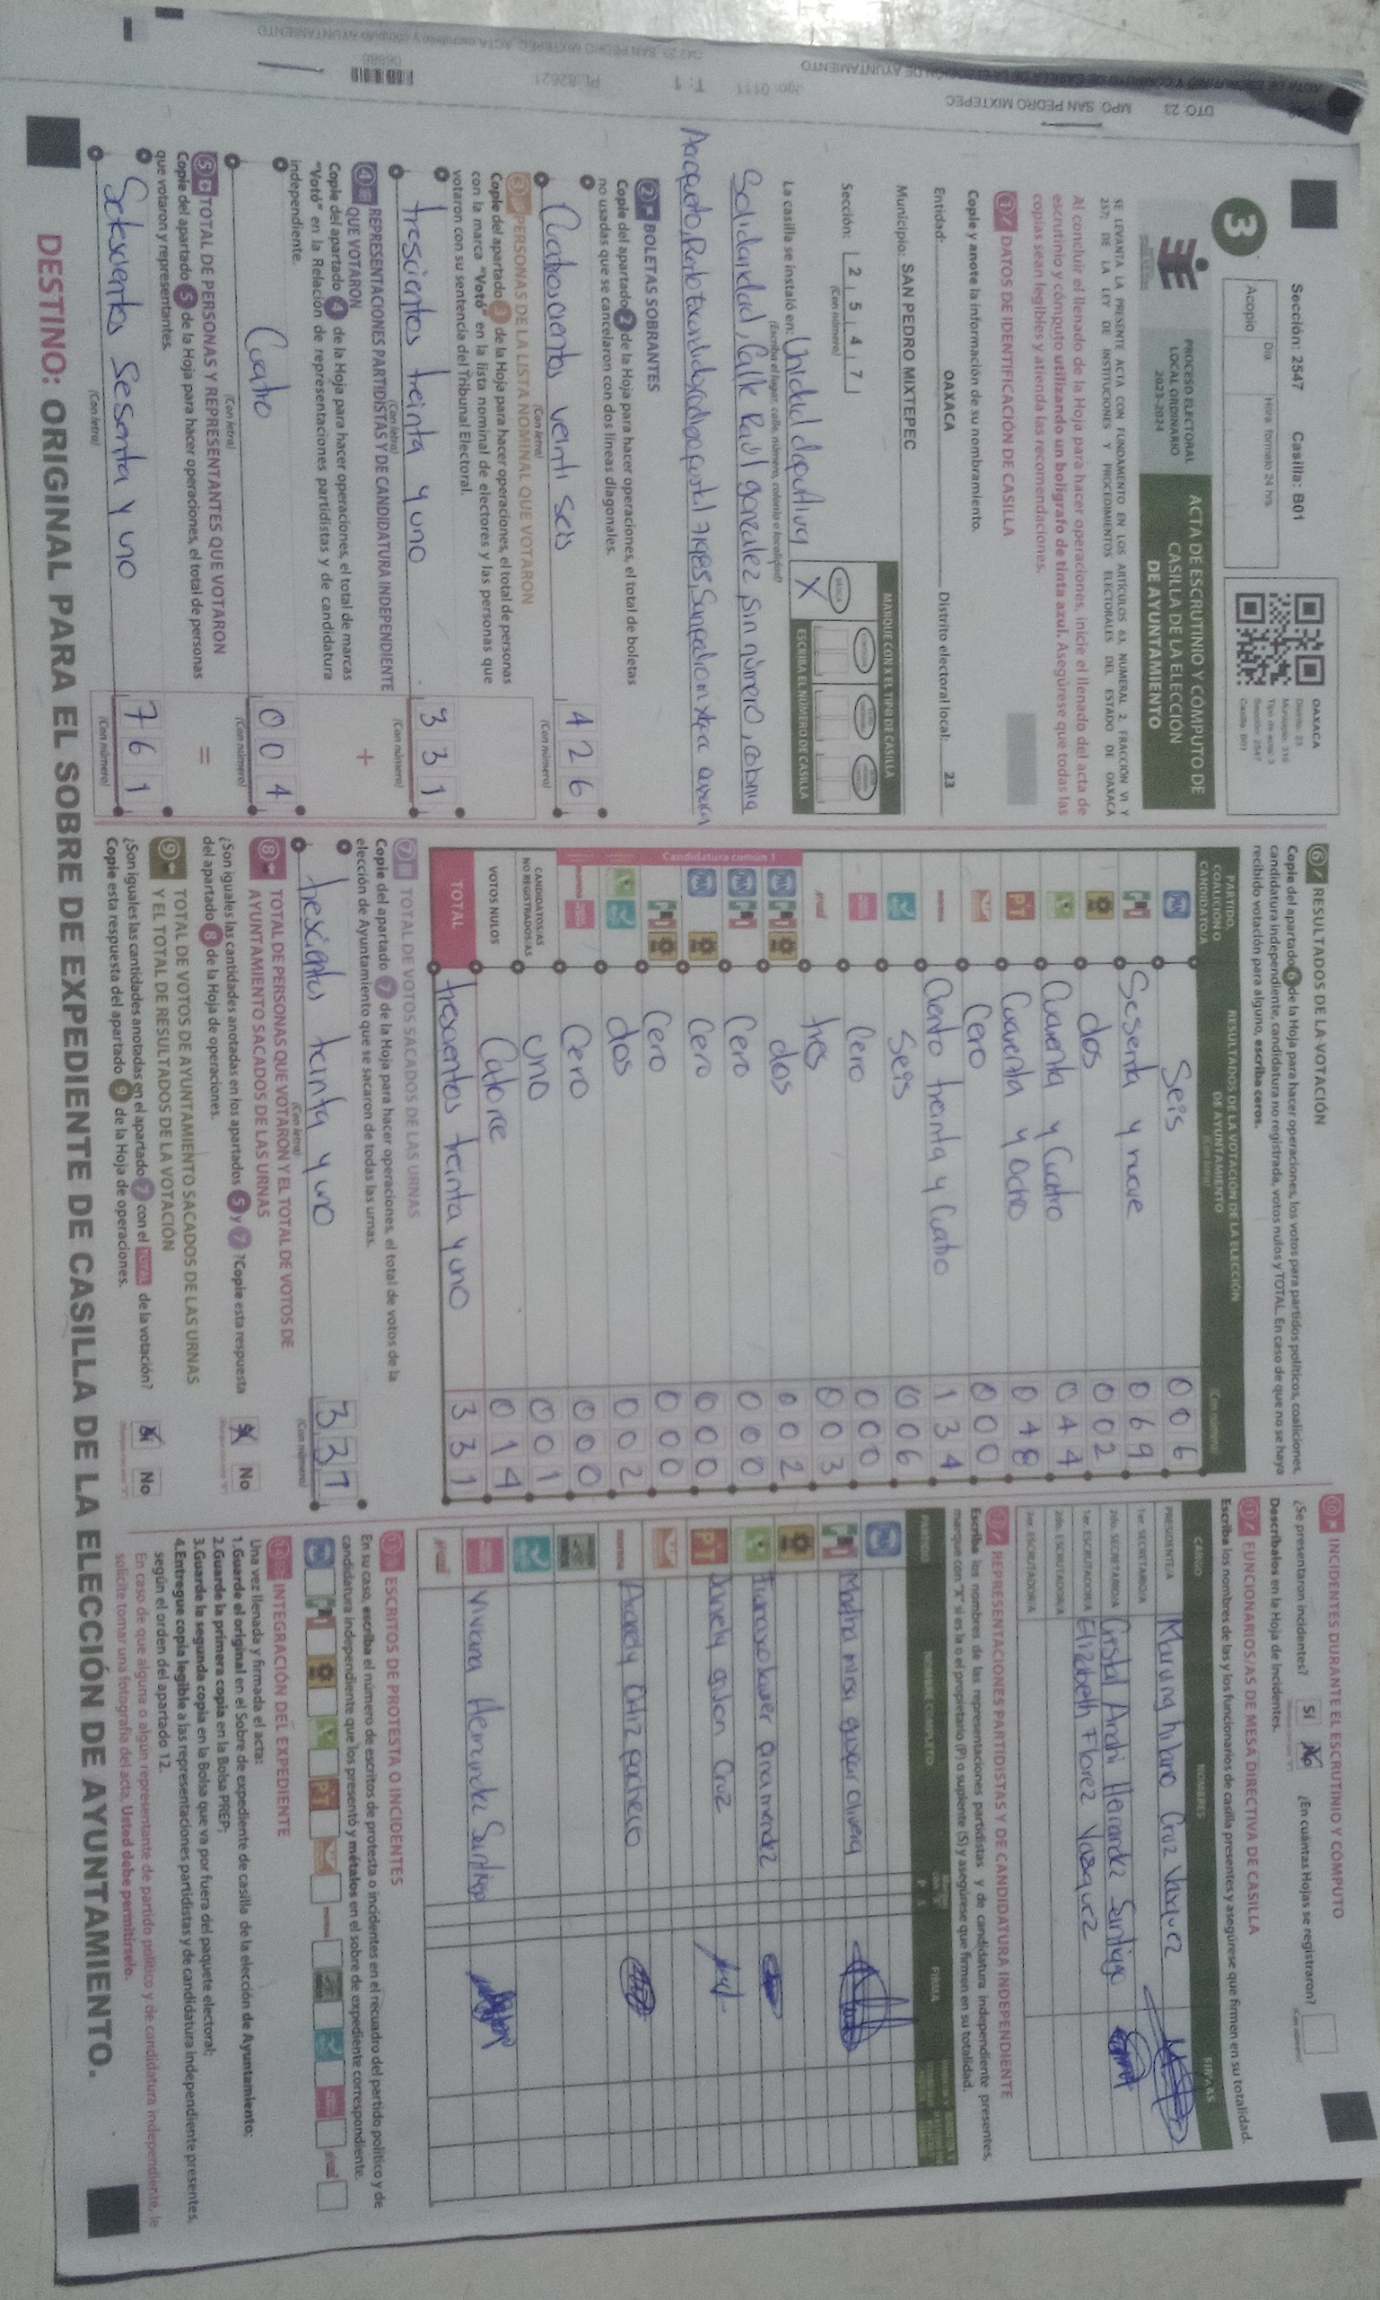 Sección: 2547 Casilla: B01
3
Acopio
Día
Hora formato 24 hrs.
OAXACA
Distrito: 23
Casilla: B01
PROCESO ELECTORAL
LOCAL ORDINARIO
2023-2024
ACTA DE ESCRUTINIO Y CÓMPUTO DE
CASILLA DE LA ELECCIÓN
DE AYUNTAMIENTO
SE LEVANTA LA PRESENTE ACTA CON FUNDAMENTO EN LOS ARTÍCULOS 63, NUMERAL 2, FRACCIÓN VI Y
237; DE LA LEY DE INSTITUCIONES Y PROCEDIMIENTOS ELECTORALES DEL ESTADO DE OAXACA
Al concluir el llenado de la Hoja para hacer operaciones, inicie el llenado del acta de
escrutinio y cómputo utilizando un bolígrafo de tinta azul. Asegúrese que todas las
copias sean legibles y atienda las recomendaciones.
1 DATOS DE IDENTIFICACIÓN DE CASILLA
Copie y anote la información de su nombramiento.
Entidad: OAXACA Distrito electoral local: 23
Municipio: SAN PEDRO MIXTEPEC
Sección: 2 5 4 7
(Con número)
MARQUE CON X EL TIPO DE CASILLA
X
ESCRIBA EL NÚMERO DE CASILLA
La casilla se instaló en: Unidad deportiva
(Escriba el lugar, calle, número, colonia o localidad)
Solidaridad, Calle Raúl gonzalez sin número, colonia
2 BOLETAS SOBRANTES
Copie del apartado 2 de la Hoja para hacer operaciones, el total de boletas
no usadas que se cancelaron con dos líneas diagonales.
Cuatrocientos veinti seis 4 2 6
(Con letra) (Con número)
3 PERSONAS DE LA LISTA NOMINAL QUE VOTARON
Copie del apartado 3 de la Hoja para hacer operaciones, el total de personas
con la marca "Votó" en la lista nominal de electores y las personas que
votaron con su sentencia del Tribunal Electoral.
trescientos treinta y uno 3 3 1
(Con letra) (Con número)
4 REPRESENTACIONES PARTIDISTAS Y DE CANDIDATURA INDEPENDIENTE
QUE VOTARON
+
Copie del apartado 4 de la Hoja para hacer operaciones, el total de marcas
"Votó" en la Relación de representaciones partidistas y de candidatura
independiente.
Cuatro 0 0 4
(Con letra) (Con número)
5 TOTAL DE PERSONAS Y REPRESENTANTES QUE VOTARON
=
Copie del apartado 5 de la Hoja para hacer operaciones, el total de personas
que votaron y representantes.
Setescientos Sesenta y uno 7 6 1
(Con letra) (Con número)
6 RESULTADOS DE LA VOTACIÓN
Copie del apartado 6 de la Hoja para hacer operaciones, los votos para partidos políticos, coaliciones,
candidatura independiente, candidatura no registrada, votos nulos y TOTAL. En caso de que no se haya
recibido votación para alguno, escriba ceros.
PARTIDO,
COALICIÓN O
CANDIDATO/A
RESULTADOS DE LA VOTACIÓN DE LA ELECCIÓN
DE AYUNTAMIENTO
(Con letra)
(Con número)
Seis 0 0 6
Sesenta y nueve 0 6 9
dos 0 0 2
Cuarenta y Cuatro 0 4 4
PT Cuarenta y ocho 0 4 8
Cero 0 0 0
morena Ciento treinta y Cuatro 1 3 4
Seis 0 0 6
Cero 0 0 0
tres 0 0 3
Candidatura común 1
dos 0 0 2
Cero 0 0 0
Cero 0 0 0
Cero 0 0 0
dos 0 0 2
Cero 0 0 0
CANDIDATOS/AS
NO REGISTRADOS/AS uno 0 0 1
VOTOS NULOS Catorce 0 1 4
TOTAL trescientos treinta y uno 3 3 1
7 TOTAL DE VOTOS SACADOS DE LAS URNAS
Copie del apartado 7 de la Hoja para hacer operaciones, el total de votos de la
elección de Ayuntamiento que se sacaron de todas las urnas.
trescientos treinta y uno 3 3 1
(Con letra) (Con número)
8 TOTAL DE PERSONAS QUE VOTARON Y EL TOTAL DE VOTOS DE
AYUNTAMIENTO SACADOS DE LAS URNAS
¿Son iguales las cantidades anotadas en los apartados 5 y 7? Copie esta respuesta
del apartado 8 de la Hoja de operaciones.
Sí No
9 TOTAL DE VOTOS DE AYUNTAMIENTO SACADOS DE LAS URNAS
Y EL TOTAL DE RESULTADOS DE LA VOTACIÓN
¿Son iguales las cantidades anotadas en el apartado 7 con el TOTAL de la votación?
Copie esta respuesta del apartado 9 de la Hoja de operaciones.
Sí No
10 INCIDENTES DURANTE EL ESCRUTINIO Y CÓMPUTO
¿Se presentaron incidentes? Sí No ¿En cuántas Hojas se registraron?
Descríbalos en la Hoja de Incidentes.
11 FUNCIONARIOS/AS DE MESA DIRECTIVA DE CASILLA
Escriba los nombres de las y los funcionarios de casilla presentes y asegúrese que firmen en su totalidad.
CARGO NOMBRES FIRMAS
PRESIDENTE/A Cruz Vasquez
1er. SECRETARIO/A
2do. SECRETARIO/A Cristal Arahi Hernandez Santiago
1er. ESCRUTADOR/A Elizabeth Florez Vasquez
2do. ESCRUTADOR/A
3er. ESCRUTADOR/A
12 REPRESENTACIONES PARTIDISTAS Y DE CANDIDATURA INDEPENDIENTE
Escriba los nombres de las representaciones partidistas y de candidatura independiente presentes,
marque con "X" si es la o el propietario (P) o suplente (S) y asegúrese que firmen en su totalidad.
PARTIDO NOMBRE COMPLETO FIRMA
PT
morena Aracely Ortiz pacheco
Viviana Hernandez Santiago
13 ESCRITOS DE PROTESTA O INCIDENTES
En su caso, escriba el número de escritos de protesta o incidentes en el recuadro del partido político y de
candidatura independiente que los presentó y métalos en el sobre de expediente correspondiente.
PT
14 INTEGRACIÓN DEL EXPEDIENTE
Una vez llenada y firmada el acta:
1.Guarde el original en el Sobre de expediente de casilla de la elección de Ayuntamiento;
2.Guarde la primera copia en la Bolsa PREP;
3.Guarde la segunda copia en la Bolsa que va por fuera del paquete electoral;
4.Entregue copia legible a las representaciones partidistas y de candidatura independiente presentes,
según el orden del apartado 12.
En caso de que alguna o algún representante de partido político y de candidatura independiente, le
solicite tomar una fotografía del acta, Usted debe permitírselo.
DESTINO: ORIGINAL PARA EL SOBRE DE EXPEDIENTE DE CASILLA DE LA ELECCIÓN DE AYUNTAMIENTO.
DTO: 23 MPO: SAN PEDRO MIXTEPEC